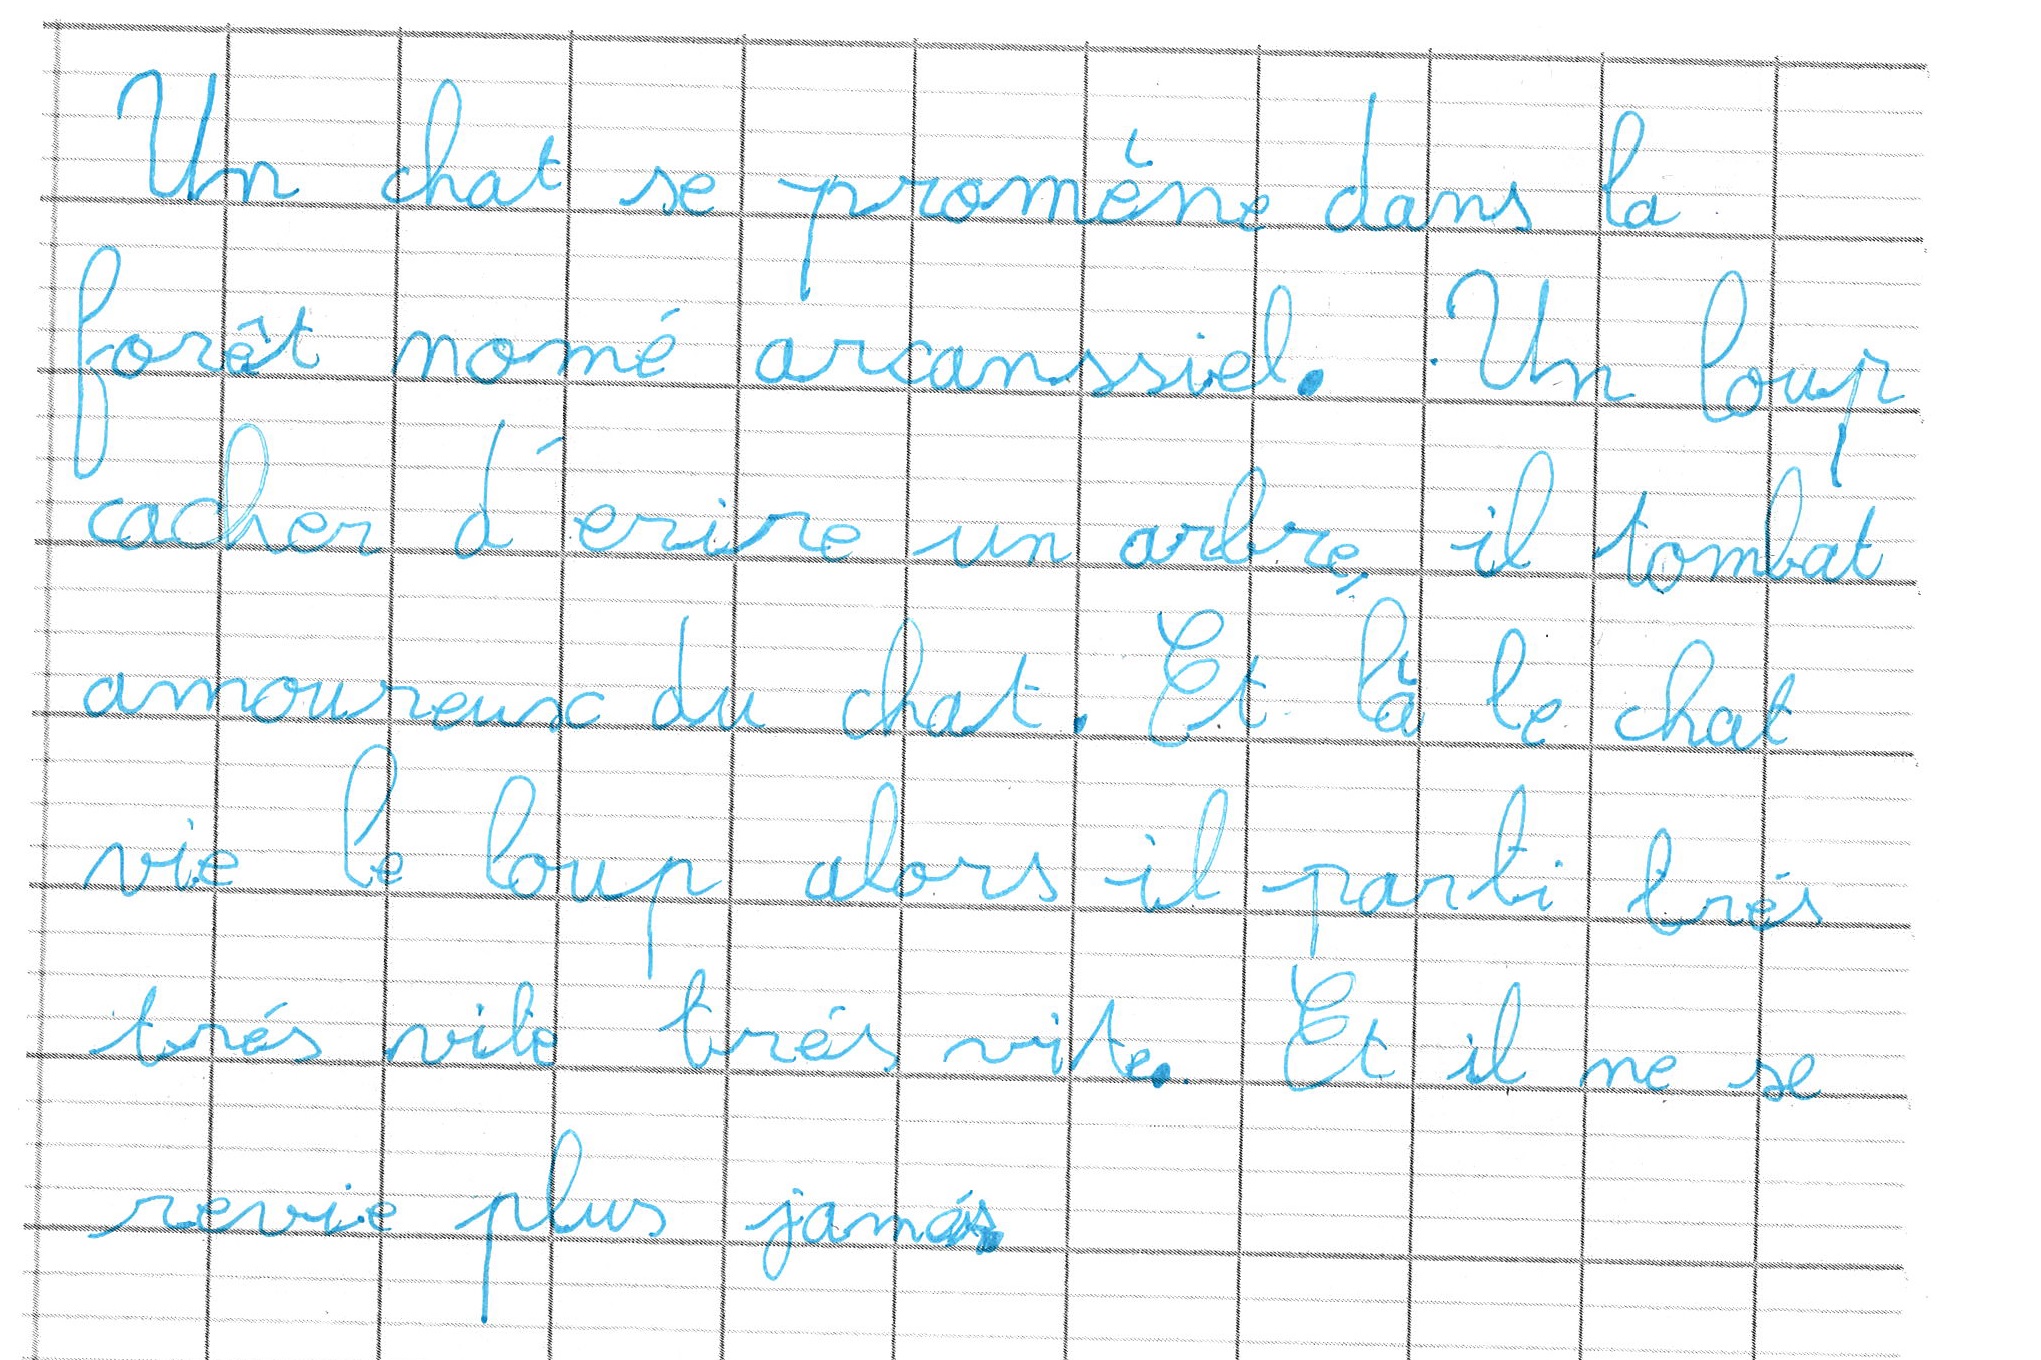 Un chat se promène dans la
forêt nomé arcanssiel. Un loup
cacher d'erire un arbre, il tombat
amoureux du chat. Et là le chat
vie le loup alors il parti trés
trés vite trés vite. Et il ne se
revie plus jamés.